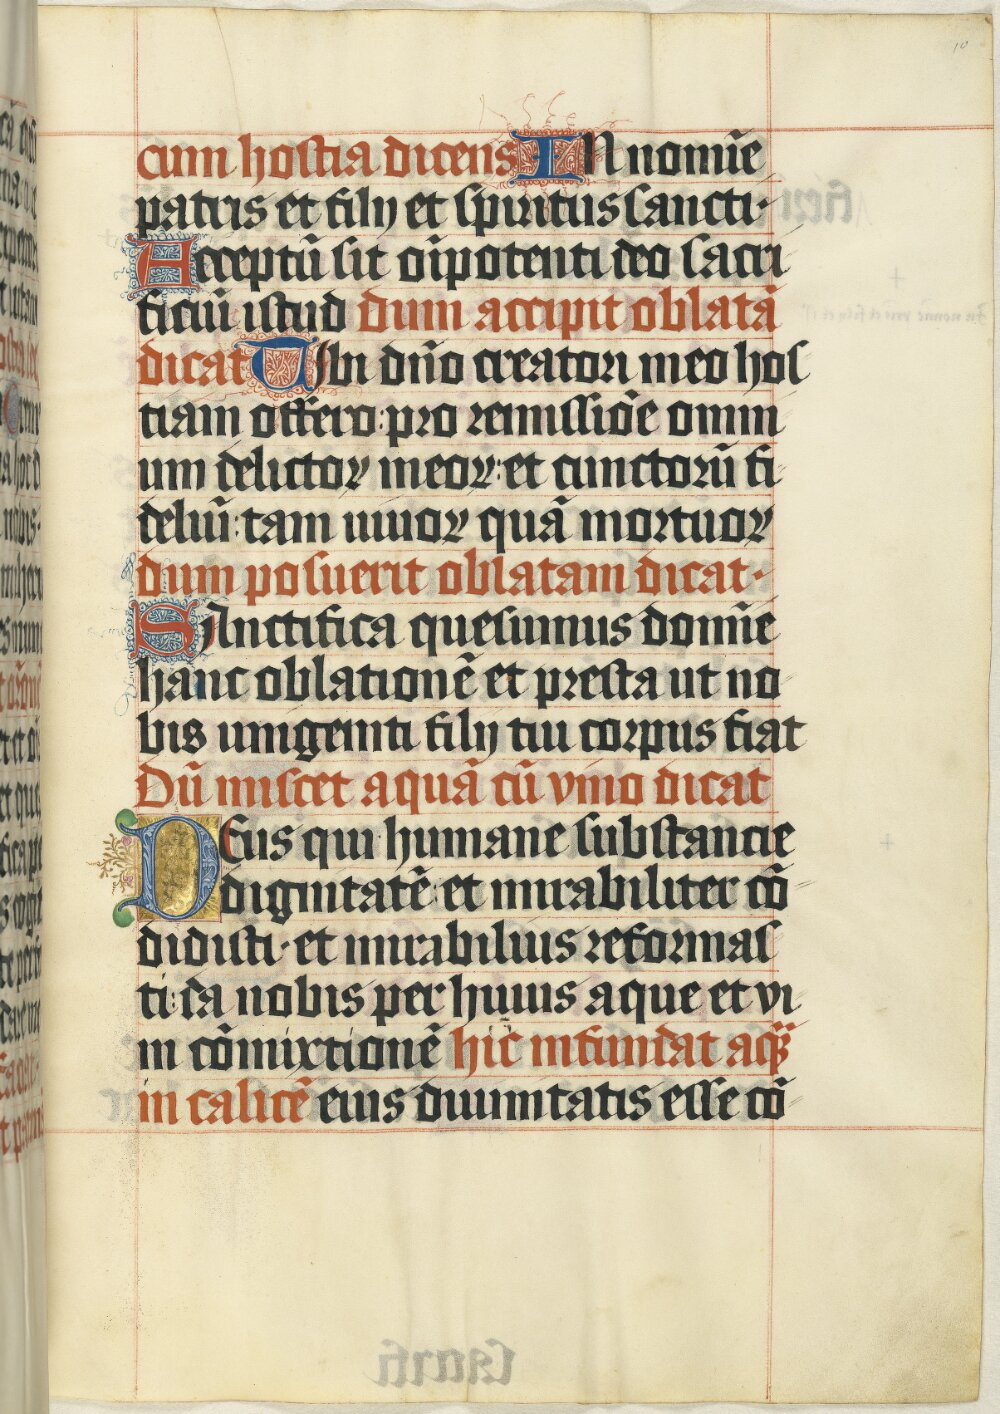 10
cum hostia dicens IN nomīe
patris et filij et spiritus sancti·
Acceptū sit oīpotenti deo sacri
ficiū istud dum accipit oblatā
dicat Tibi dn̄o creatori meo hos
tiam offero: pro remissiōe omni
um delictoꝝ meoꝝ: et cunctorū fi
deliū: tam uiuoꝝ quā mortuoꝝ
dum posuerit oblatam dicat·
SAnctifica quesumus domīe
hanc oblationē et presta ut no
bis unigeniti filij tui corpus fiat
Dū miscet aquā cū vino dicat
DEus qui humane substancie
dignitatē: et mirabiliter cō
didisti· et mirabilius reformas
ti: da nobis per huius aque et vi
ni cōmixtionē hic infundat aqͣꝫ
in calicē eius diuinitatis esse cō